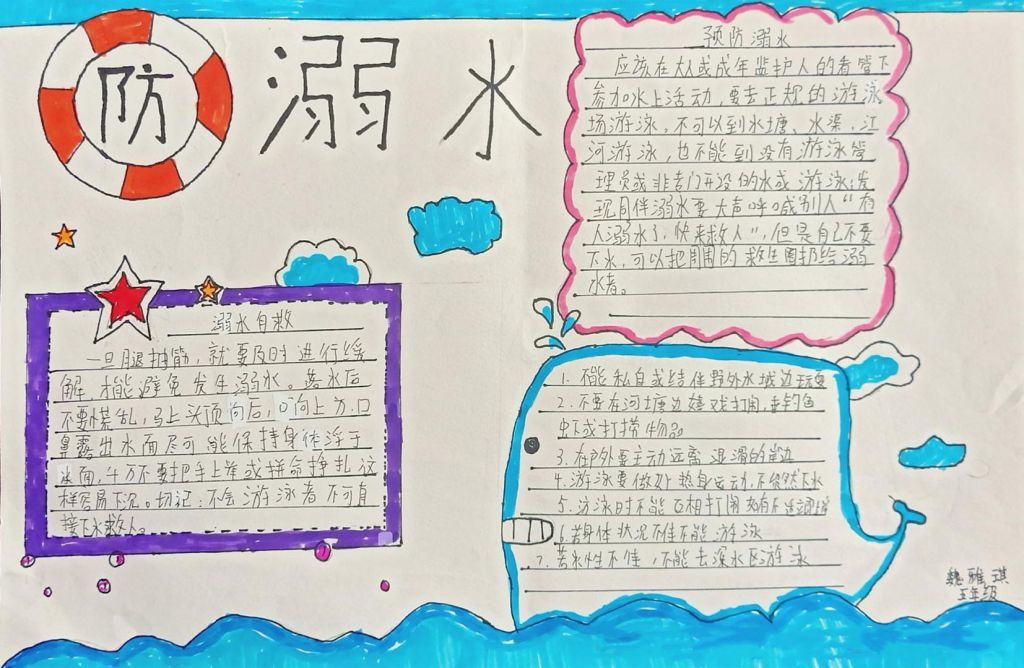 防溺水
预防溺水
应该在大人或成年监护人的看管下
参加水上活动,要去正规的游泳
场游泳,不可以到水塘、水渠、江
河游泳,也不能到没有游泳管
理员或非专门开设的水或游泳;发
现同伴溺水要大声呼喊别人“有
人溺水了,快来救人”,但是自己不要
下水,可以把周围的救生圈扔给溺
水者。
溺水自救
一旦腿抽筋,就要及时进行缓
解,才能避免发生溺水。落水后
不要慌乱,马上头顶向后,口向上方,口
鼻露出水面尽可能保持身体浮于
水面,千万不要把手上举或拼命挣扎这
样容易下沉。切记:不会游泳者不可直
接下水救人。
1、不能私自或结伴野外水域边玩耍
2、不要在河塘边嬉戏打闹,去钓鱼
虾或打捞物品
3、在户外要主动远离湿滑的岸边
4、游泳要做好热身运动,不贸然下水
5、泳泳时不能互相打闹
6、若身体状况不佳不能游泳
7、若水性不佳,不能去深水区游泳
魏雅琪
五年级